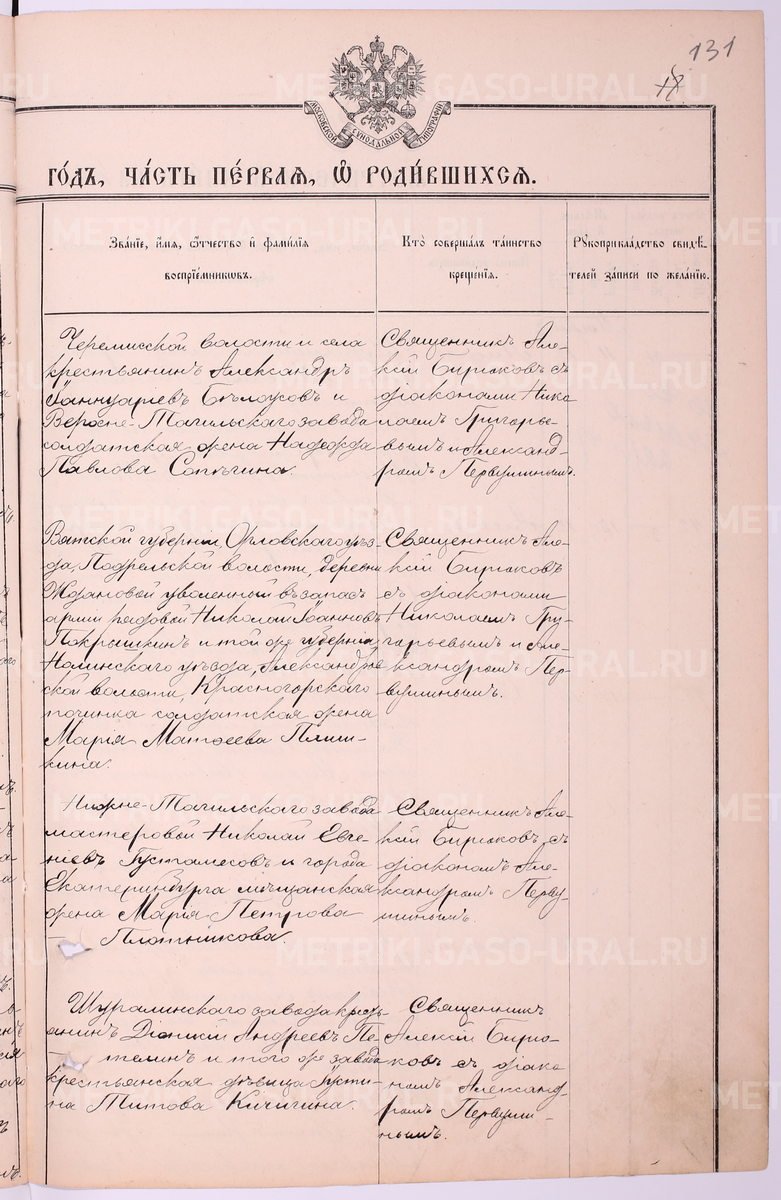 131
МОСКОВСКОЙ СѴНОДАЛЬНОЙ ТИПОГРАФІИ
METRIKI.GASO-URAL.RU
го́дъ, ча́сть пе́рвая, ѡ҆ роди́вшихся.
Зва́нїе, и҆́мѧ, ѻ҆́тчество и҆ фами́лїѧ
воспрїе́мниковъ.
Кто̀ соверша́лъ та́инство
креще́нїѧ.
Рꙋкоприкла́дство свидѣ́-
телей за́писи по жела́нїю.
Черемисской волости и села
крестьянинъ Александръ
Іаннуаріевъ Бѣлоусовъ и
Верхне-Тагильскаго завода
солдатская жена Надежда
Павлова Сапѣгина.
Священникъ Але-
ксій Бирюковъ съ
діаконами Нико
лаемъ Григорье-
вымъ и Александ-
ромъ Первушинымъ.
Вятской губерніи, Орловскаго уѣз-
да, Подрельской волости, деревни
Ждановой уволенный въ запасъ
арміи рядовой Николай Іоанновъ
Покрышкинъ и той же губерніи
Нолинскаго уѣзда, Александров
ской волости, Красногорскаго
починка солдатская жена
Марія Матѳеева Плиш-
кина.
Священникъ Але-
ксій Бирюковъ
съ діаконами
Николаемъ Гри-
горьевымъ и Але-
ксандромъ Пер-
вушинымъ.
Нижне-Тагильскаго завода
мастеровой Николай Евге-
ніевъ Густомесовъ и города
Екатеринбурга мѣщанская
жена Марія Петрова
Плотникова.
Священникъ Але-
ксій Бирюковъ съ
діакономъ Але-
ксандромъ Перву-
шинымъ.
Шуралинскаго завода кресть-
янинъ Андреевъ Пе-
телинъ и того же завода
крестьянская дѣвица Іусти-
на Титова Кичигина.
Священникъ
Алексій Бирю-
ковъ съ діако
номъ Александ-
ромъ Первуши-
нымъ.